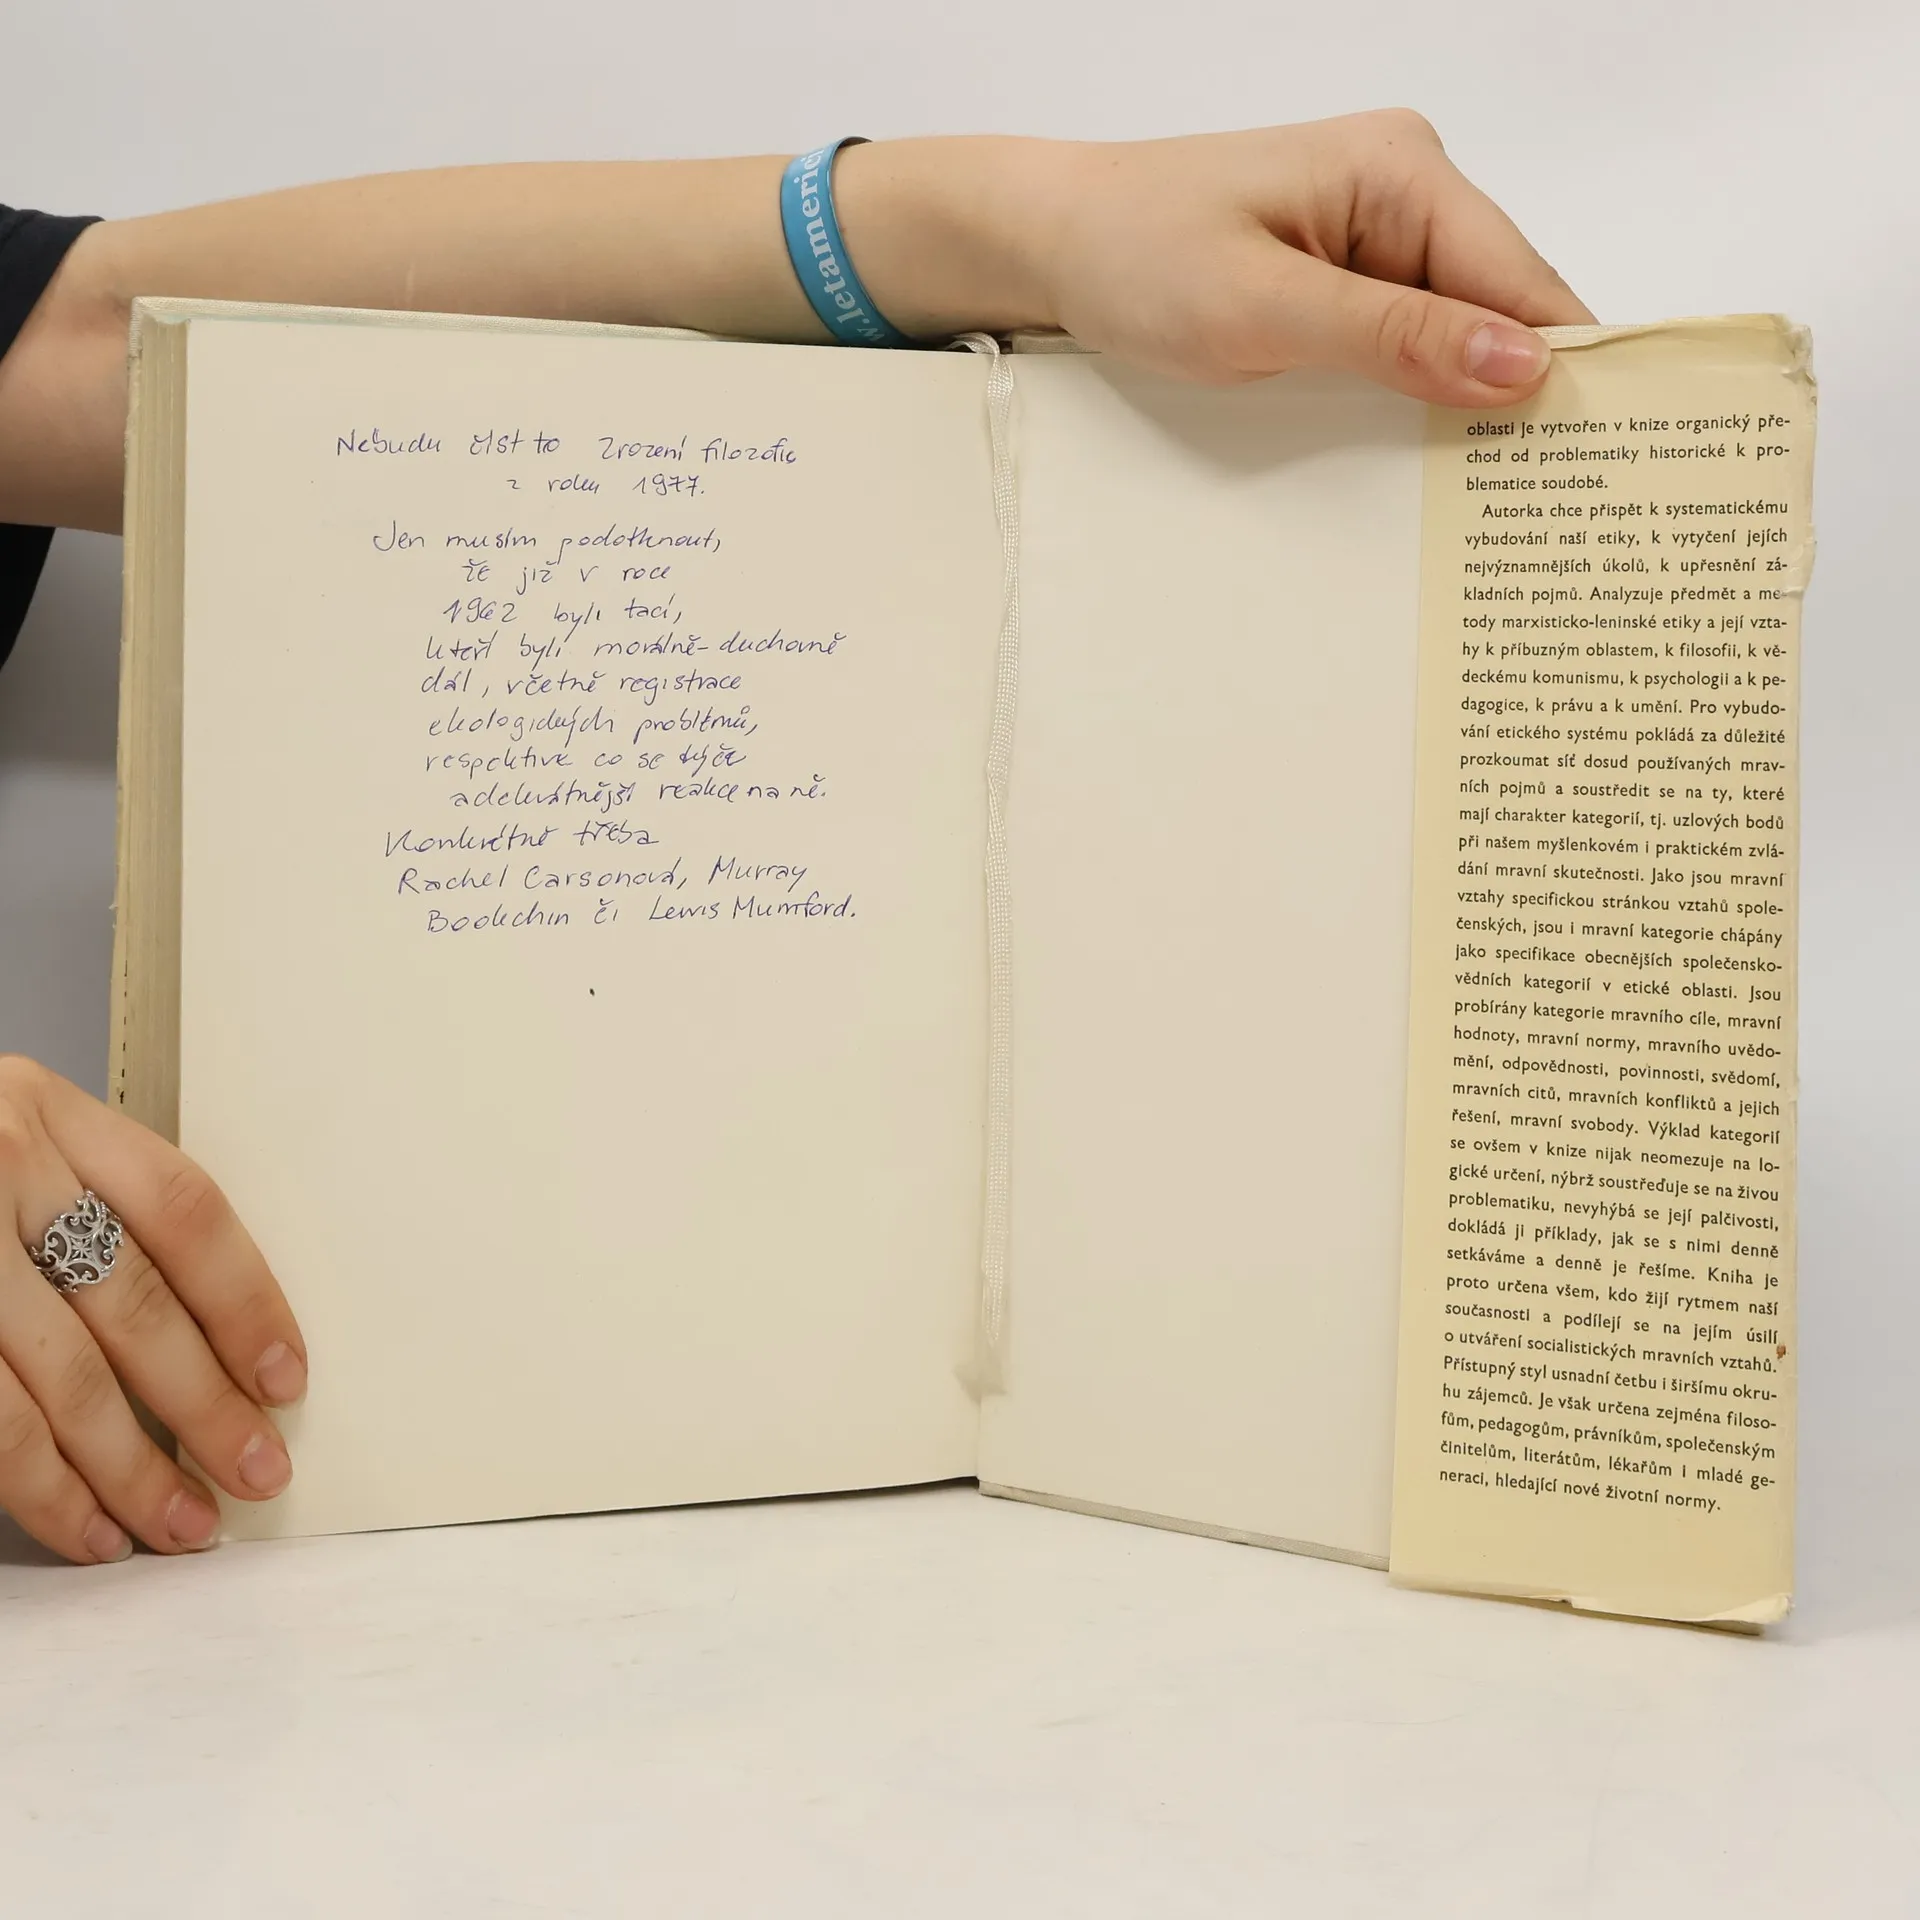 w.letameric
Nebudu číst to Zrození filozofie
z roku 1977.
Jen musím podotknout,
že již v roce
1962 byli tací,
kteří byli morálně-duchovně
dál, včetně registrace
ekologických problémů,
respektive co se týče
adekvátnější reakce na ně.
Konkrétně třeba
Rachel Carsonová, Murray
Bookchin či Lewis Mumford.
oblasti je vytvořen v knize organický pře-
chod od problematiky historické k pro-
blematice soudobé.
Autorka chce přispět k systematickému
vybudování naší etiky, k vytyčení jejích
nejvýznamnějších úkolů, k upřesnění zá-
kladních pojmů. Analyzuje předmět a me-
tody marxisticko-leninské etiky a její vzta-
hy k příbuzným oblastem, k filosofii, k vě-
deckému komunismu, k psychologii a k pe-
dagogice, k právu a k umění. Pro vybudo-
vání etického systému pokládá za důležité
prozkoumat síť dosud používaných mrav-
ních pojmů a soustředit se na ty, které
mají charakter kategorií, tj. uzlových bodů
při našem myšlenkovém i praktickém zvlá-
dání mravní skutečnosti. Jako jsou mravní
vztahy specifickou stránkou vztahů spole-
čenských, jsou i mravní kategorie chápány
jako specifikace obecnějších společensko-
vědních kategorií v etické oblasti. Jsou
probírány kategorie mravního cíle, mravní
hodnoty, mravní normy, mravního uvědo-
mění, odpovědnosti, povinnosti, svědomí,
mravních citů, mravních konfliktů a jejich
řešení, mravní svobody. Výklad kategorií
se ovšem v knize nijak neomezuje na lo-
gické určení, nýbrž soustřeďuje se na živou
problematiku, nevyhýbá se její palčivosti,
dokládá ji příklady, jak se s nimi denně
setkáváme a denně je řešíme. Kniha je
proto určena všem, kdo žijí rytmem naší
současnosti a podílejí se na jejím úsilí
o utváření socialistických mravních vztahů.
Přístupný styl usnadní četbu i širšímu okru-
hu zájemců. Je však určena zejména filoso-
fům, pedagogům, právníkům, společenským
činitelům, literátům, lékařům i mladé ge-
neraci, hledající nové životní normy.